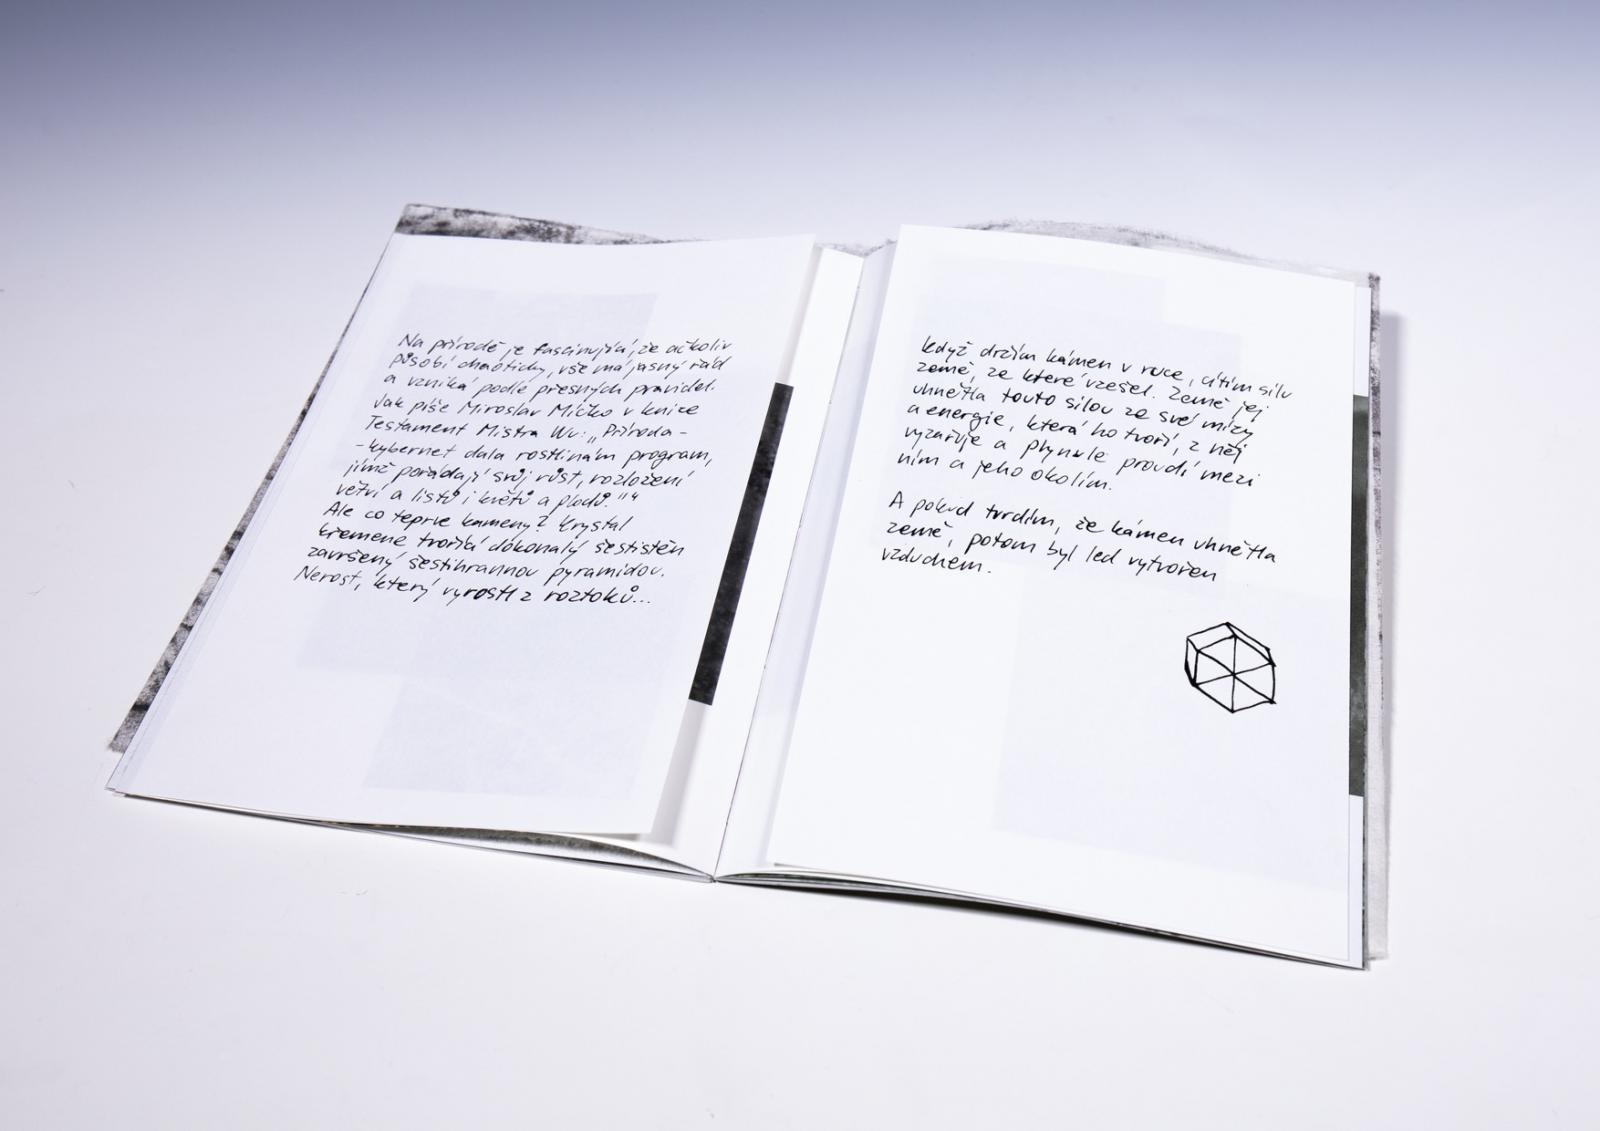 Na přírodě je fascinující, že ačkoliv
působí chaoticky, vše má jasný řád
a vzniká podle přesných pravidel.
Jak píše Miroslav Míčko v knize
Testament Mistra Wu: „Příroda-
-kybernet dala rostlinám program,
jímž pořádají svůj růst, rozložení
větví a listů i květů a plodů."⁴
Ale co teprve kameny? Krystal
křemene tvořící dokonalý šestistěn
završený šestihrannou pyramidou.
Nerost, který vyrostl z roztoků...
Když držím kámen v ruce, cítím sílu
země, ze které vzešel. Země jej
uhnětla touto silou ze své mízy
a energie, která ho tvoří, z něj
vyzařuje a plynule proudí mezi
ním a jeho okolím.
A pokud tvrdím, že kámen uhnětla
země, potom byl led vytvořen
vzduchem.